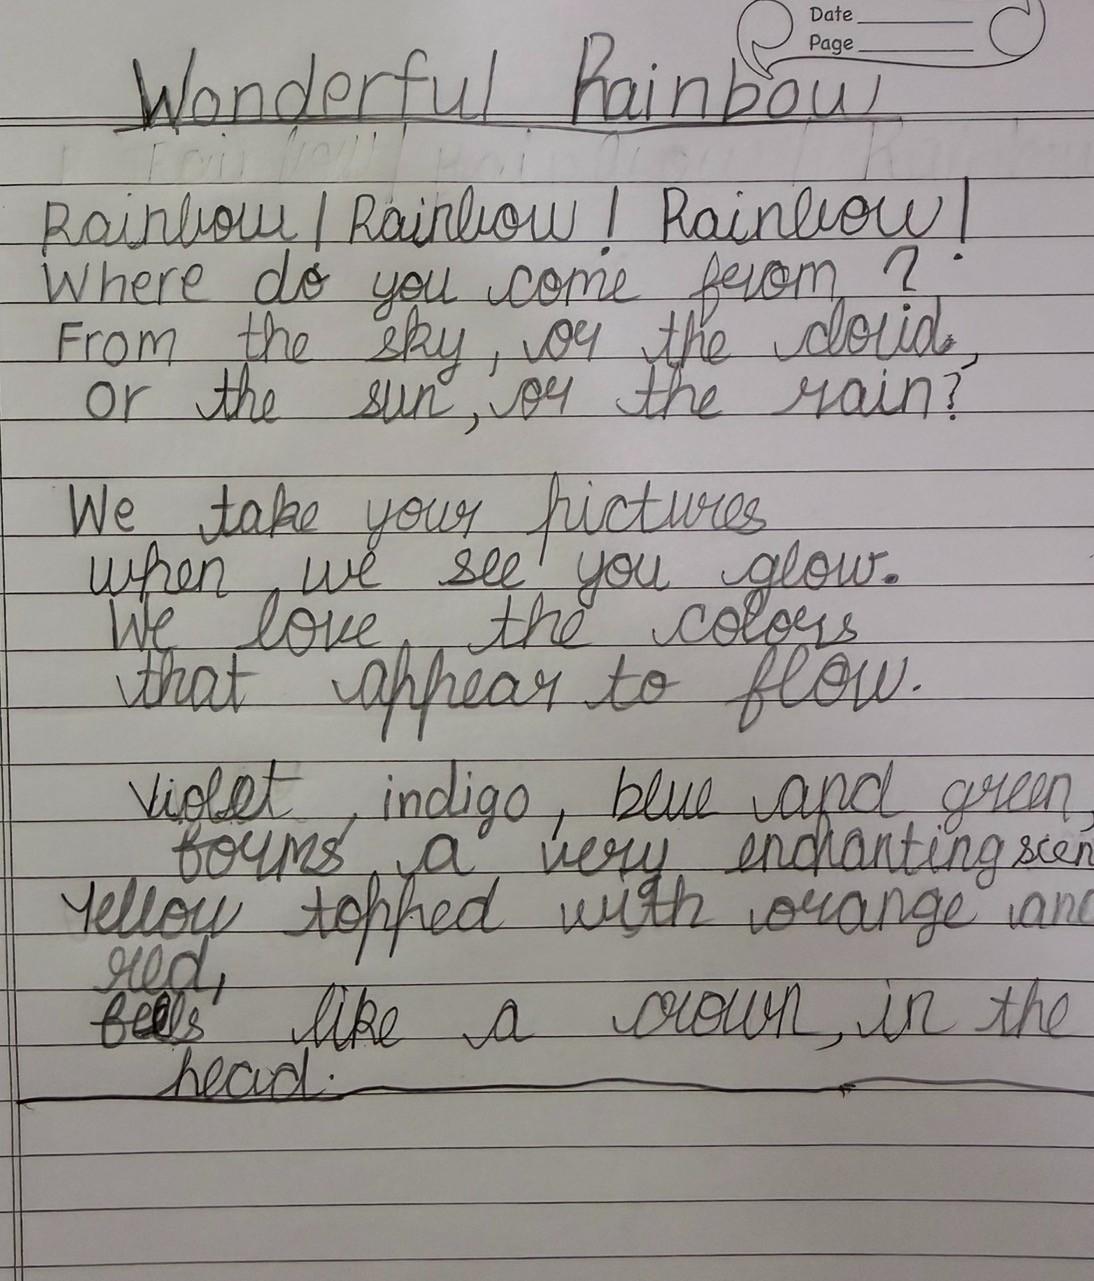 Date
Page
Wonderful Rainbow
Rainbow! Rainbow! Rainbow!
Where do you come from?
From the sky, or the cloud,
or the sun, or the rain?
We take your pictures
when we see you glow.
We love the colors
that appear to flow.
Violet, indigo, blue and green,
forms a very enchanting scen
Yellow topped with orange and
red,
feels like a crown, in the
head.